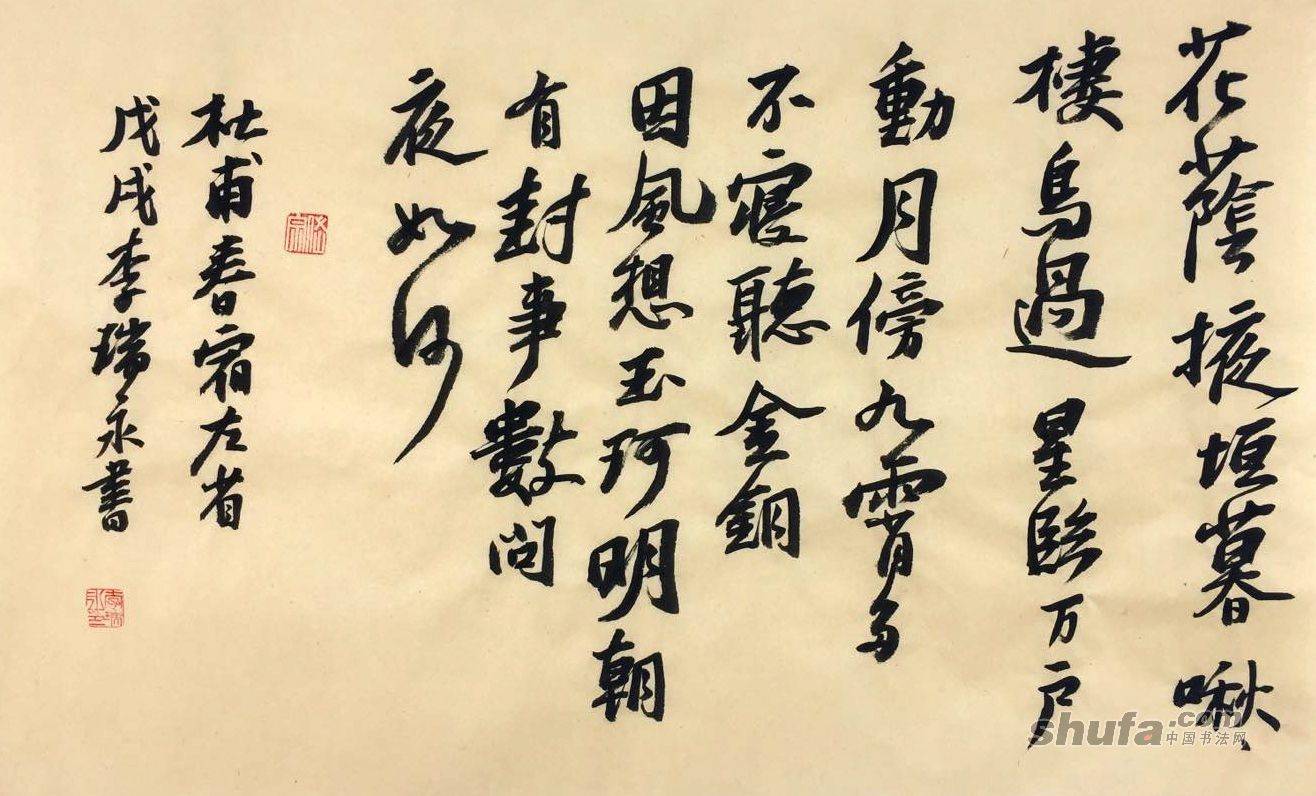 花蔭掖垣暮啾々
棲鳥過星臨万户
動月傍九霄多
不寢聽金鈅
因風想玉珂明朝
有封事數問
夜如何
杜甫春宿左省
戊戌李瑞永書
shufa.com
中国书法网